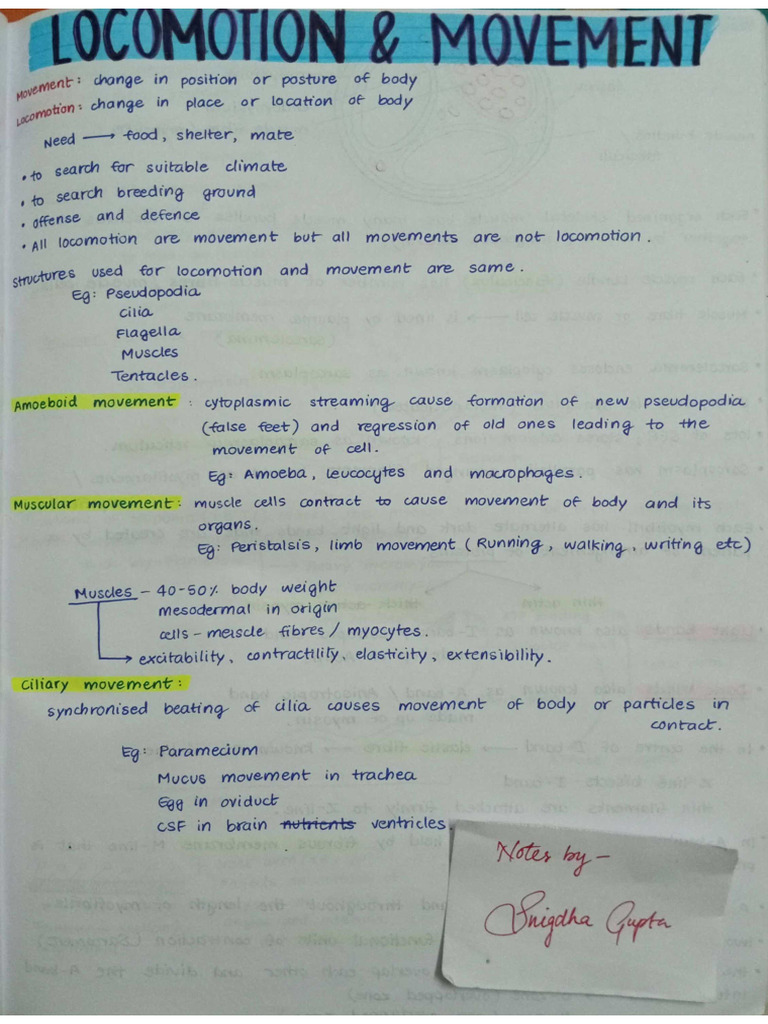 LOCOMOTION & MOVEMENT
Movement: change in position or posture of body
Locomotion: change in place or location of body
Need → food, shelter, mate
• to search for suitable climate
• to search breeding ground
• offense and defence
• All locomotion are movement but all movements are not locomotion.
structures used for locomotion and movement are same.
Eg: Pseudopodia
Cilia
Flagella
Muscles
Tentacles.
Amoeboid movement : cytoplasmic streaming cause formation of new pseudopodia
(false feet) and regression of old ones leading to the
movement of cell.
Eg: Amoeba, leucocytes and macrophages.
Muscular movement: muscle cells contract to cause movement of body and its
organs.
Eg: Peristalsis, limb movement (Running, walking, writing etc)
Muscles – 40-50% body weight
mesodermal in origin
cells – muscle fibres / myocytes.
→ excitability, contractility, elasticity, extensibility.
Ciliary movement:
synchronised beating of cilia causes movement of body or particles in
contact.
Eg: Paramecium
Mucus movement in trachea
Egg in oviduct
CSF in brain nutrients ventricles.
Notes by –
Snigdha Gupta